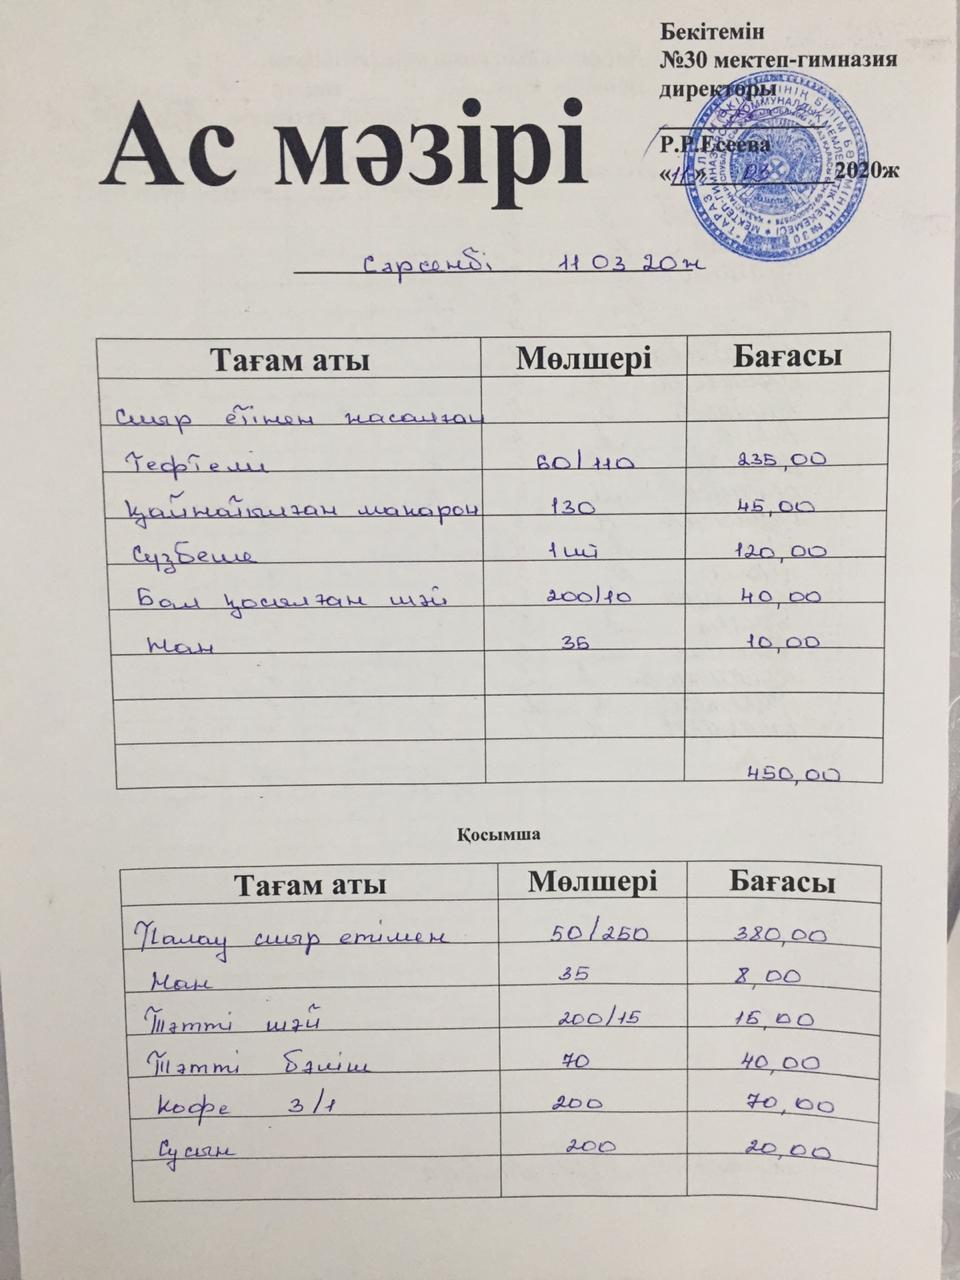 Бекітемін
№30 мектеп-гимназия
директоры
Р.Р.Есеева
«11» 03 2020ж
Ас мәзірі
Сәрсенбі 11 03 20ж
Тағам аты Мөлшері Бағасы
Сиыр етінен жасалған
Тефтели 60/110 235,00
Қайнатылған макарон 130 45,00
Сүзбеше 1 шт 120,00
Бал қосылған шәй 200/10 40,00
Нан 35 10,00
450,00
Қосымша
Тағам аты Мөлшері Бағасы
Палау сиыр етімен 50/250 380,00
Нан 35 8,00
Тәтті шәй 200/15 15,00
Тәтті бәліш 70 40,00
Кофе 3/1 200 70,00
Сусын 200 20,00